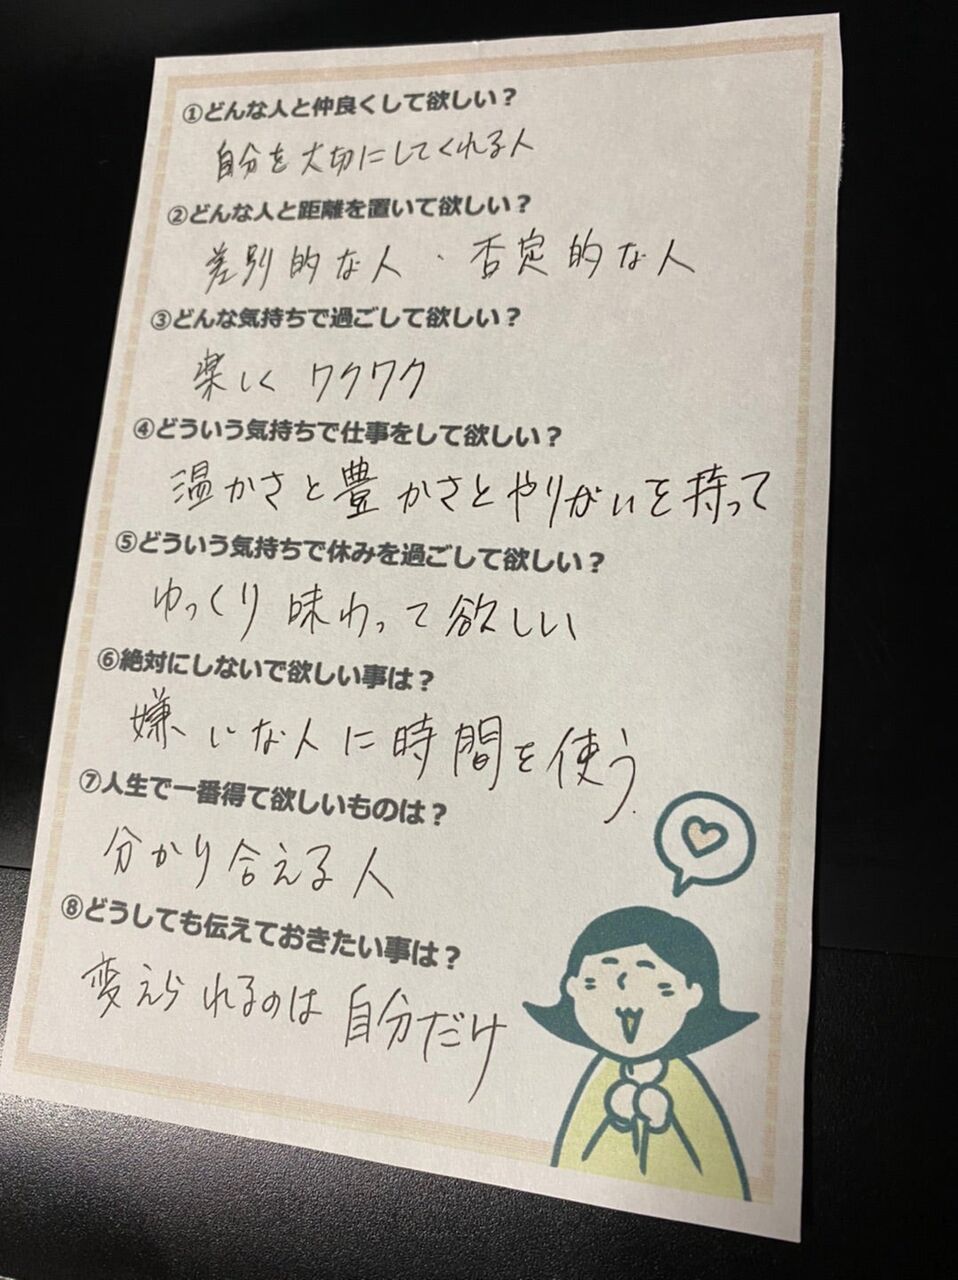 ①どんな人と仲良くして欲しい？
自分を大切にしてくれる人
②どんな人と距離を置いて欲しい？
差別的な人・否定的な人
③どんな気持ちで過ごして欲しい？
楽しく ワクワク
④どういう気持ちで仕事をして欲しい？
温かさと豊かさとやりがいを持って
⑤どういう気持ちで休みを過ごして欲しい？
ゆっくり味わって欲しい
⑥絶対にしないで欲しい事は？
嫌いな人に時間を使う.
⑦人生で一番得て欲しいものは？
分かり合える人
⑧どうしても伝えておきたい事は？
変えられるのは自分だけ